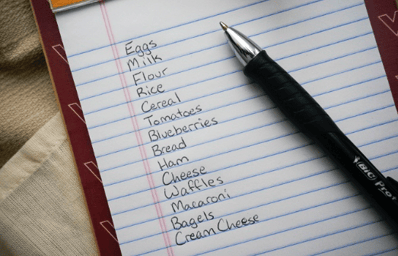 Eggs
Milk
Flour
Rice
Cereal
Tomatoes
Blueberries
Bread
Ham
Cheese
Waffles
Macaroni
Bagels
Cream Cheese
BIC Pro+